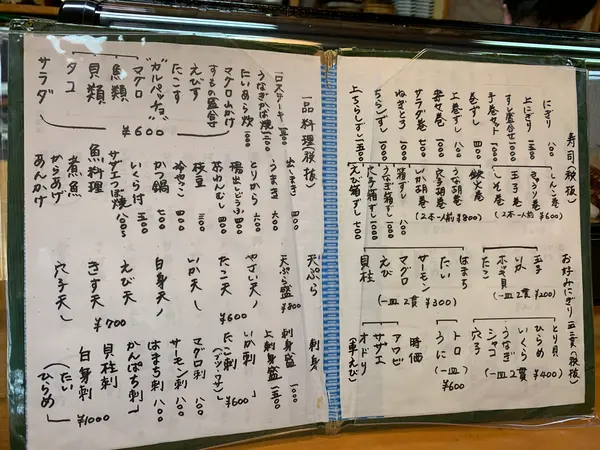 寿司 (税抜)
にぎり 八〇〇
上にぎり 一二〇〇
すし盛合せ 一五〇〇
手巻セット 一五〇〇
巻ずし
上巻ずし
サラダ巻
ねぎとろ
ちらしずし 一〇〇〇
上ちらしずし 一五〇〇
しんこ巻
きゅうり巻
(2本一人前) ¥600
玉子巻
しそ巻
(2本一人前)
鉄火巻
うな胡巻
穴子胡巻
いか胡巻
(2本一人前) ¥800
箱ずし 八〇〇
うなぎ箱ずし
穴子箱ずし
えび箱ずし 七〇〇
お好みにぎり 一皿二貫 (税抜)
玉子
いか
ホッキ貝
たこ
(一皿2貫) ¥200
はまち
たい
サーモン
マグロ
えび
貝柱
(一皿2貫) ¥300
とり貝
ひらめ
いくら
うなぎ
シャコ
穴子
(一皿2貫) ¥400
トロ
うに
(一皿) ¥600
時価
アワビ
サザエ
オドリ
(車えび)
一品料理 (税抜)
ロースステーキ
うなぎかば焼
たいあら炊
マグロ山かけ
すもの盛合せ
えびす
たこす
カルパッチョ
マグロ
魚類
貝類
タコ
¥600
サラダ
出しまき
うまき 六〇〇
とりから 六〇〇
揚出しどうふ
茶わんむし 四〇〇
枝豆 三〇〇
冷やっこ
かつ鍋 七〇〇
いくら付 五〇〇
サザエつぼ焼 八〇〇
魚料理
煮魚
からあげ
あんかけ
天ぷら
天ぷら盛 ¥800
やさい天
たこ天 ¥600
いか天
白身天
えび天
きす天 ¥700
穴子天
刺身
刺身盛 一〇〇〇
上刺身盛 一五〇〇
いか刺
たこ刺 ¥600
マグロ刺 八〇〇
サーモン刺 八〇〇
はまち刺 八〇〇
かんぱち刺
貝柱刺
白身刺 ¥1000
(たい
ひらめ)